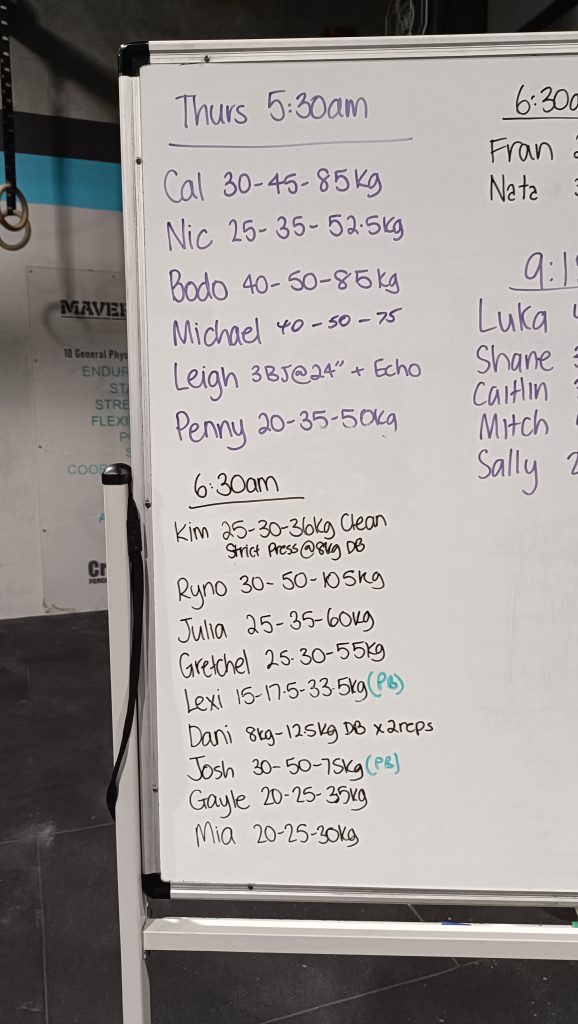 Thurs 5:30am
Cal 30-45-85kg
Nic 25-35-52.5kg
Bodo 40-50-85kg
Michael 40-50-75
Leigh 3BJ@24" + Echo
Penny 20-35-50kg
6:30am
Kim 25-30-36kg Clean
Strict Press@8kg DB
Ryno 30-50-105kg
Julia 25-35-60kg
Gretchel 25-30-55kg
Lexi 15-17.5-33.5kg (PB)
Dani 8kg-12.5kg DB x2reps
Josh 30-50-75kg (PB)
Gayle 20-25-35kg
Mia 20-25-30kg
6:30
Fran
Nata
9:1
Luka
Shane
Caitlin
Mitch
Sally
MAVE
10 General Phys
ENDUR
STRE
FLEXI
COO